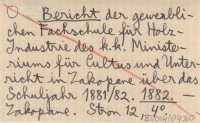 Bericht der gewerbli-
chen Fachschule für Holz-
Industrie des k.k. Ministe-
riums für Cultus und Unter-
richt in Zakopane über das
Schuljahr 1881/82. 1882 —
Zakopane. Stron 12 4º